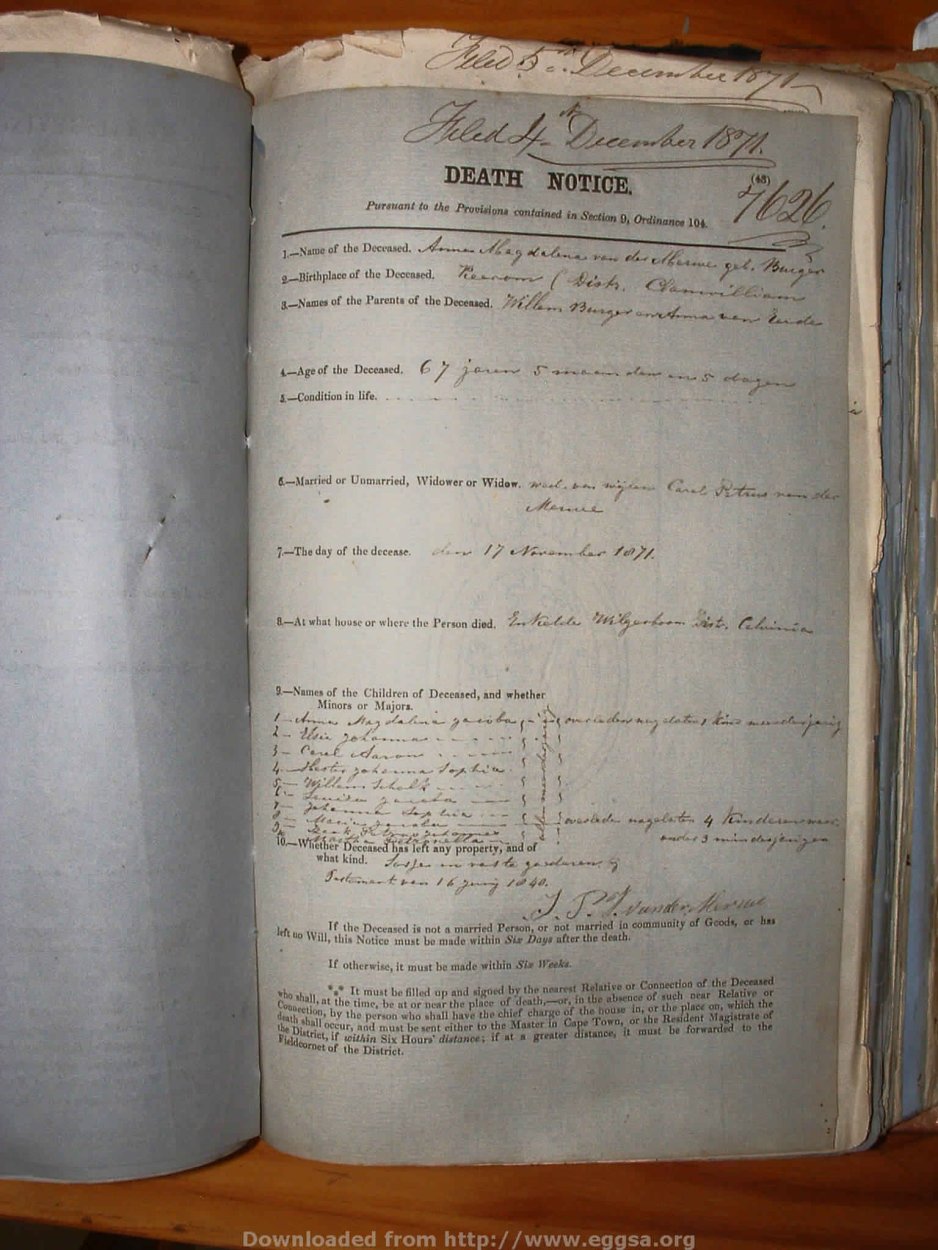 Filed 5th December 1871
Filed 4th December 1871.
DEATH NOTICE.
(48)
7626
Pursuant to the Provisions contained in Section 9, Ordinance 104.
1.—Name of the Deceased. Anna Magdalena van der Merwe geb. Burger
2.—Birthplace of the Deceased. Keerom (Distr. Clanwilliam
3.—Names of the Parents of the Deceased. Willem Burger en Anna van
4.—Age of the Deceased. 67 jaren 5 maanden en 5 dagen
5.—Condition in life.
6.—Married or Unmarried, Widower or Widow. wed. van wijlen Carel Petrus van der
Merwe
7.—The day of the decease. den 17 November 1871.
8.—At what house or where the Person died. Enkelde Wilgerboom Distr. Calvinia
9.—Names of the Children of Deceased, and whether
Minors or Majors.
1— Anna Magdalena Jacoba overleden nagelaten 1 kind minderjarig
2— Elsie Johanna
3— Carel Aaron
4— Hester Johanna Sophia
5— Willem Schalk
6— Jacoba
7— Johanna Sophia
8— Maria Jacoba overleden nagelaten 4 Kinderen waar
9— Petrus Johannes
10— Martha onder 3 minderjarigen
allen meerderjarig
10.—Whether Deceased has left any property, and of
what kind. Losse en vaste goederen, bij
Testament van 16 Junij 1840.
van der Merwe
If the Deceased is not a married Person, or not married in community of Goods, or has
left no Will, this Notice must be made within Six Days after the death.
If otherwise, it must be made within Six Weeks.
*** It must be filled up and signed by the nearest Relative or Connection of the Deceased
who shall, at the time, be at or near the place of death,—or, in the absence of such near Relative or
Connection, by the person who shall have the chief charge of the house in, or the place on, which the
death shall occur, and must be sent either to the Master in Cape Town, or the Resident Magistrate of
the District, if within Six Hours' distance; if at a greater distance, it must be forwarded to the
Fieldcornet of the District.
Downloaded from http://www.eggsa.org